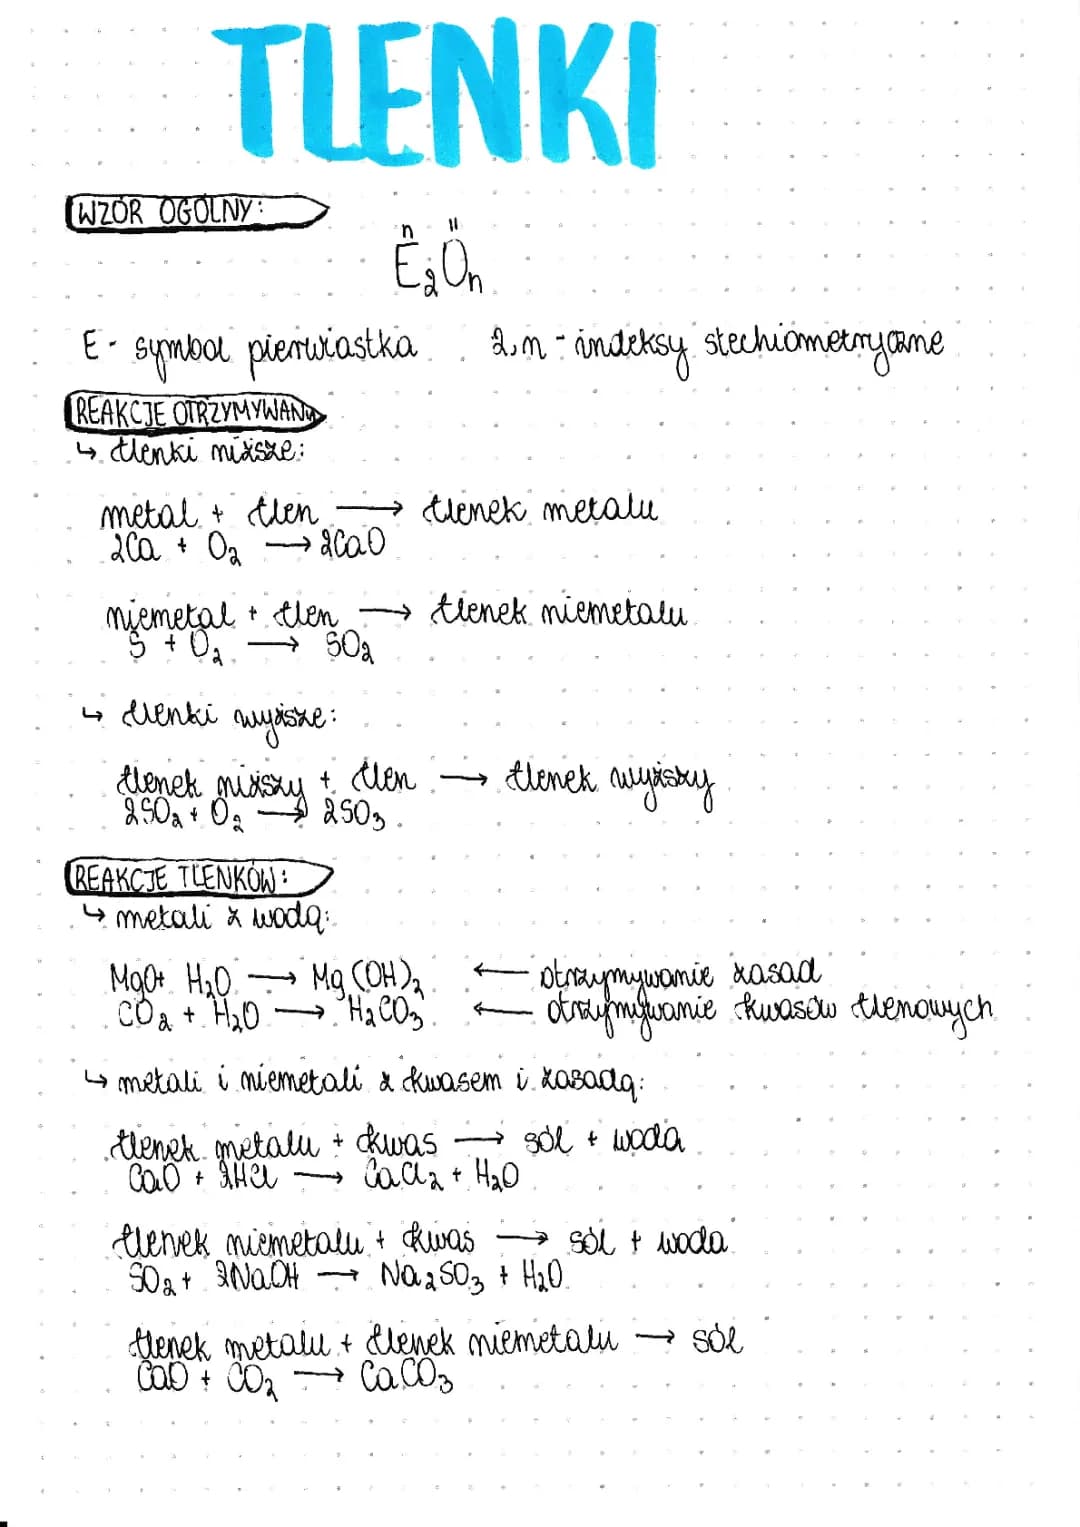 TLENKI
WZÓR OGÓLNY:
n II
E₂On
E - symbol pierwiastka 2,n - indeksy stechiometryczne
REAKCJE OTRZYMYWANIA
↳ tlenki niższe:
metal + tlen → tlenek metalu
2Ca + O₂ → 2CaO
niemetal + tlen → tlenek niemetalu
S + O₂ → SO₂
↳ tlenki wyższe:
tlenek niższy + tlen → tlenek wyższy
2SO₂ + O₂ → 2SO₃
REAKCJE TLENKÓW:
↳ metali z wodą:
MgO + H₂O → Mg(OH)₂ ← otrzymywanie zasad
CO₂ + H₂O → H₂CO₃ ← otrzymywanie kwasów tlenowych
↳ metali i niemetali z kwasem i zasadą:
tlenek metalu + kwas → sól + woda
CaO + 2HCl → CaCl₂ + H₂O
tlenek niemetalu + kwas → sól + woda
SO₂ + 2NaOH → Na₂SO₃ + H₂O
tlenek metalu + tlenek niemetalu → sól
CaO + CO₂ → CaCO₃